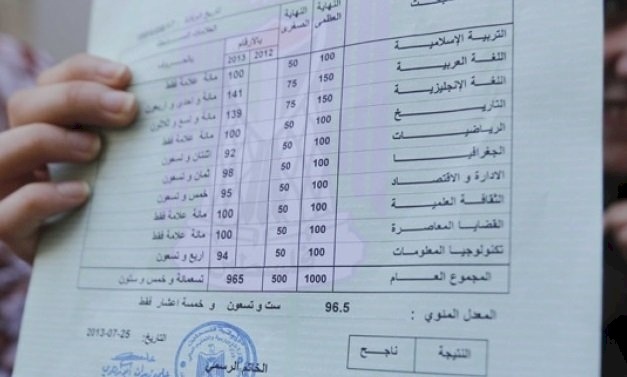 النهاية العظمى النهاية الصغرى بالأرقام
2012 2013
التربية الإسلامية 100 50 100 مائة علامة فقط
اللغة العربية 150 75 141 مائة و احدى و اربعون
اللغة الإنجليزية 150 75 139 مائة و تسع و ثلاثون
التاريخ 100 50 100 مائة علامة فقط
الرياضيات 100 50 92 اثنتان و تسعون
الجغرافيا 100 50 98 ثمان و تسعون
الادارة و الاقتصاد 100 50 95 خمس و تسعون
الثقافة العلمية 100 50 100 مائة علامة فقط
القضايا المعاصرة 100 50 100 مائة علامة فقط
تكنولوجيا المعلومات 100 50 94 اربع و تسعون
المجموع العام 1000 500 965 تسعمائة و خمس و ستون
المعدل المئوي : 96.5 ست و تسعون و خمسة اعشار فقط
النتيجة ناجح
التاريخ: 25-07-2013
الخاتم الرسمي